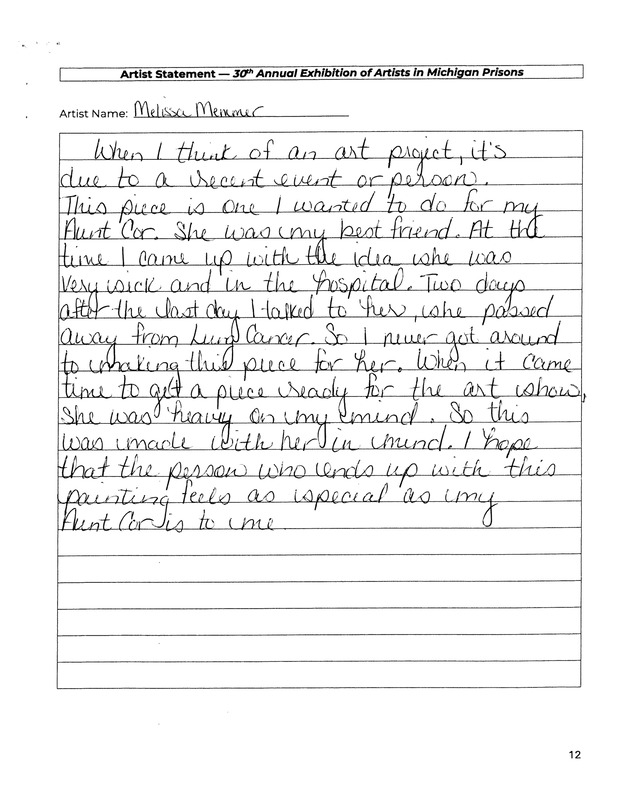 Artist Statement — 30th Annual Exhibition of Artists in Michigan Prisons
Artist Name: Melissa Memmer
When I think of an art project, it's
due to a recent event or person.
This piece is one I wanted to do for my
Aunt Cor. She was my best friend. At the
time I came up with the idea she was
very sick and in the hospital. Two days
after the last day I talked to her, she passed
away from Lung Cancer. So I never got around
to making this piece for her. When it came
time to get a piece ready for the art show,
She was heavy on my mind. So this
was made with her in mind. I hope
that the person who ends up with this
painting feels as special as my
Aunt Cor is to me
12